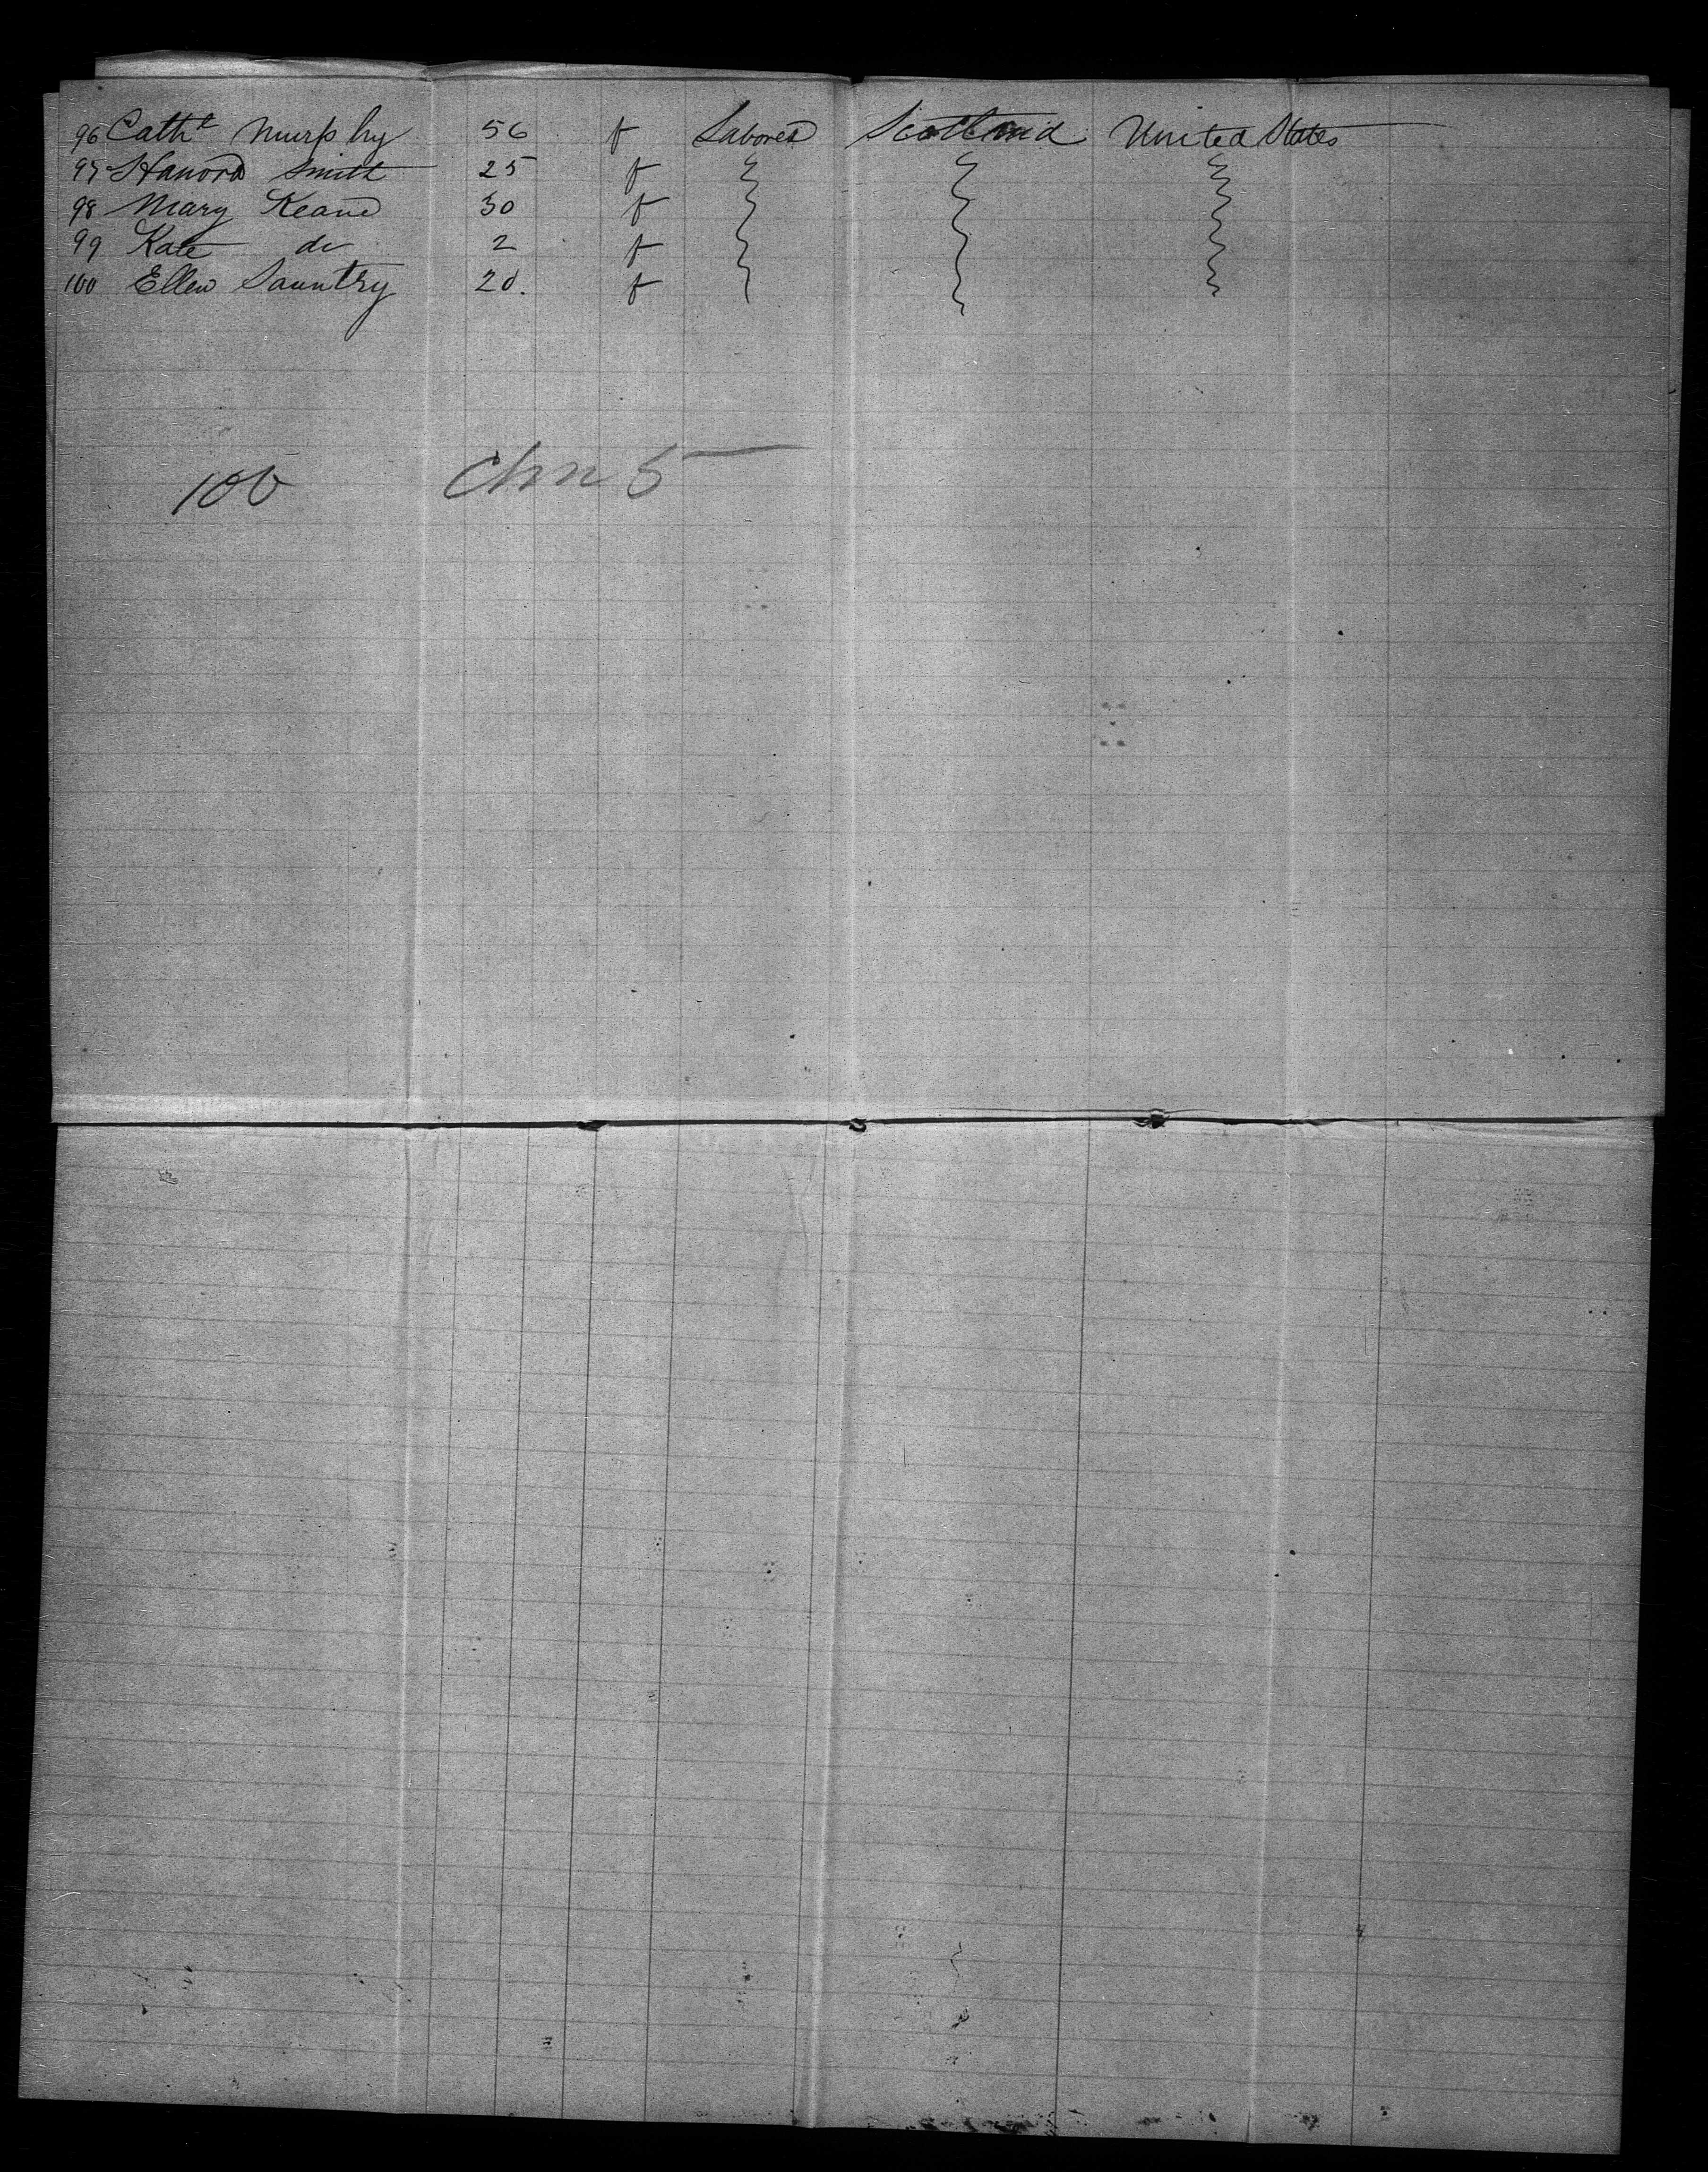 96 Cathe Murphy 56 f Laborer Scotland United States
97 Hanora Smith 25 f
98 Mary Keane 30 f
99 Kate do 2 f
100 Ellen Sauntry 20. f
100 Chn 5